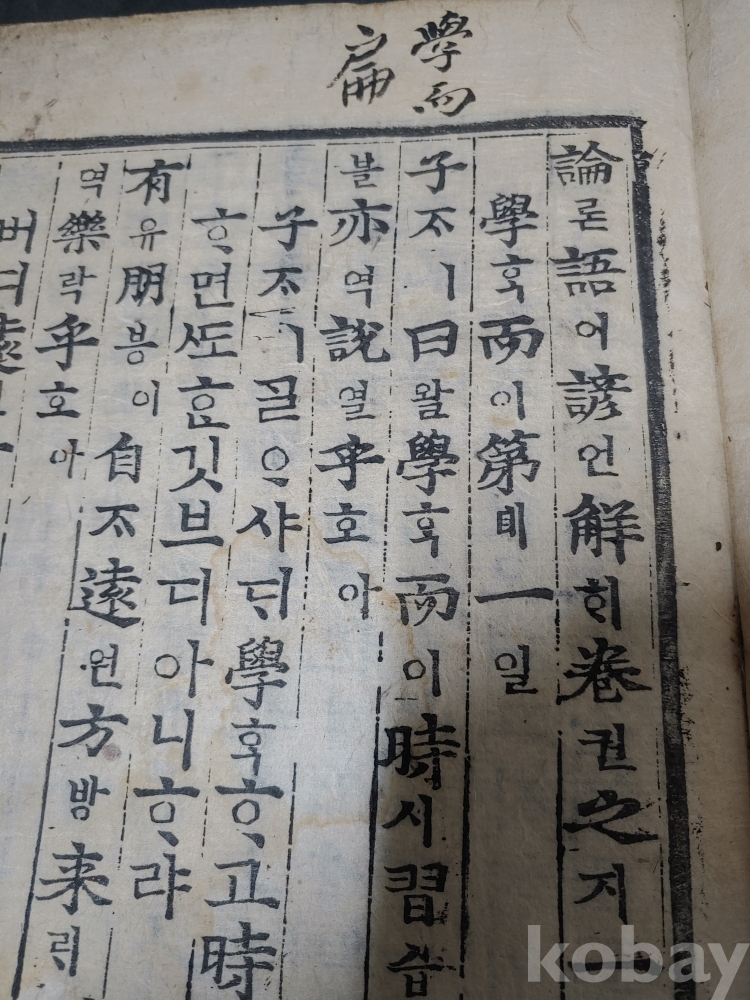 學而
扁
論론語어諺언解ᄒᆡ卷권之지一
學ᄒᆞᆨ而이第뎨一일
子ᄌᆞㅣ曰왈學ᄒᆞᆨ而이時시習습
블亦역說열乎호아
子ᄌᆞㅣᄀᆞᆯᄋᆞ샤ᄃᆡ學ᄒᆞᆨᄒᆞ고時
ᄒᆞ면ᄯᅩᄒᆞᆫ깃브디아니ᄒᆞ랴
有유朋붕이自ᄌᆞ遠원方방来ᄅᆡ
역樂락乎호아
버디遠
kobay